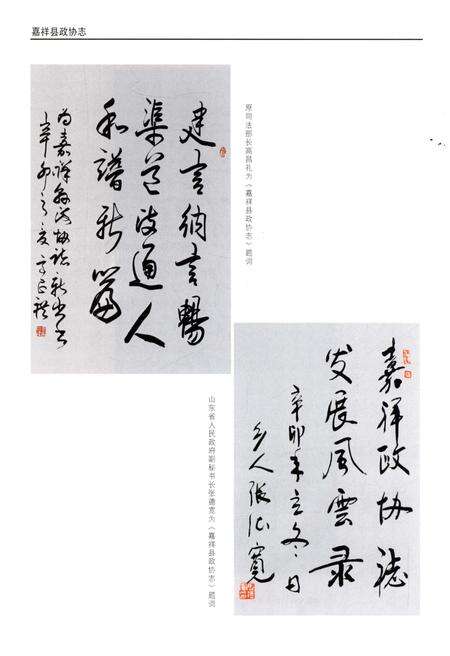 嘉祥县政协志
建言纳言畅
渠道政通人
和谱新篇
为嘉祥县政协志新出书
辛卯之夏
原司法部长高昌礼为《嘉祥县政协志》题词
嘉祥政协志
发展风云录
辛卯年立冬日
乡人张德宽
山东省人民政府副秘书长张德宽为《嘉祥县政协志》题词